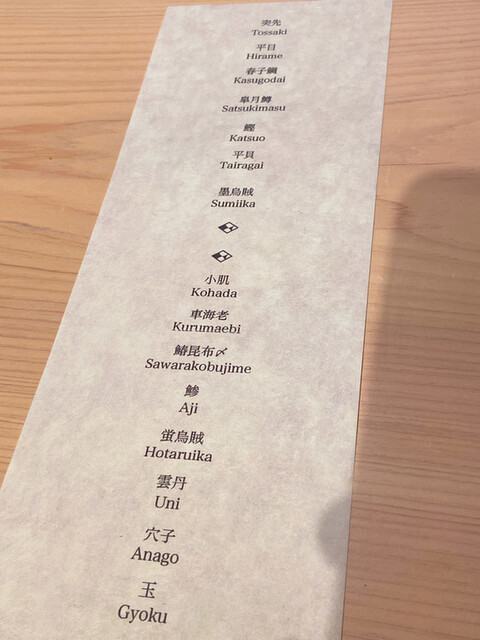 突先
Tossaki
平目
Hirame
春子鯛
Kasugodai
皐月鱒
Satsukimasu
鰹
Katsuo
平貝
Tairagai
墨烏賊
Sumiika
小肌
Kohada
車海老
Kurumaebi
鰆昆布〆
Sawarakobujime
鯵
Aji
蛍烏賊
Hotaruika
雲丹
Uni
穴子
Anago
玉
Gyoku